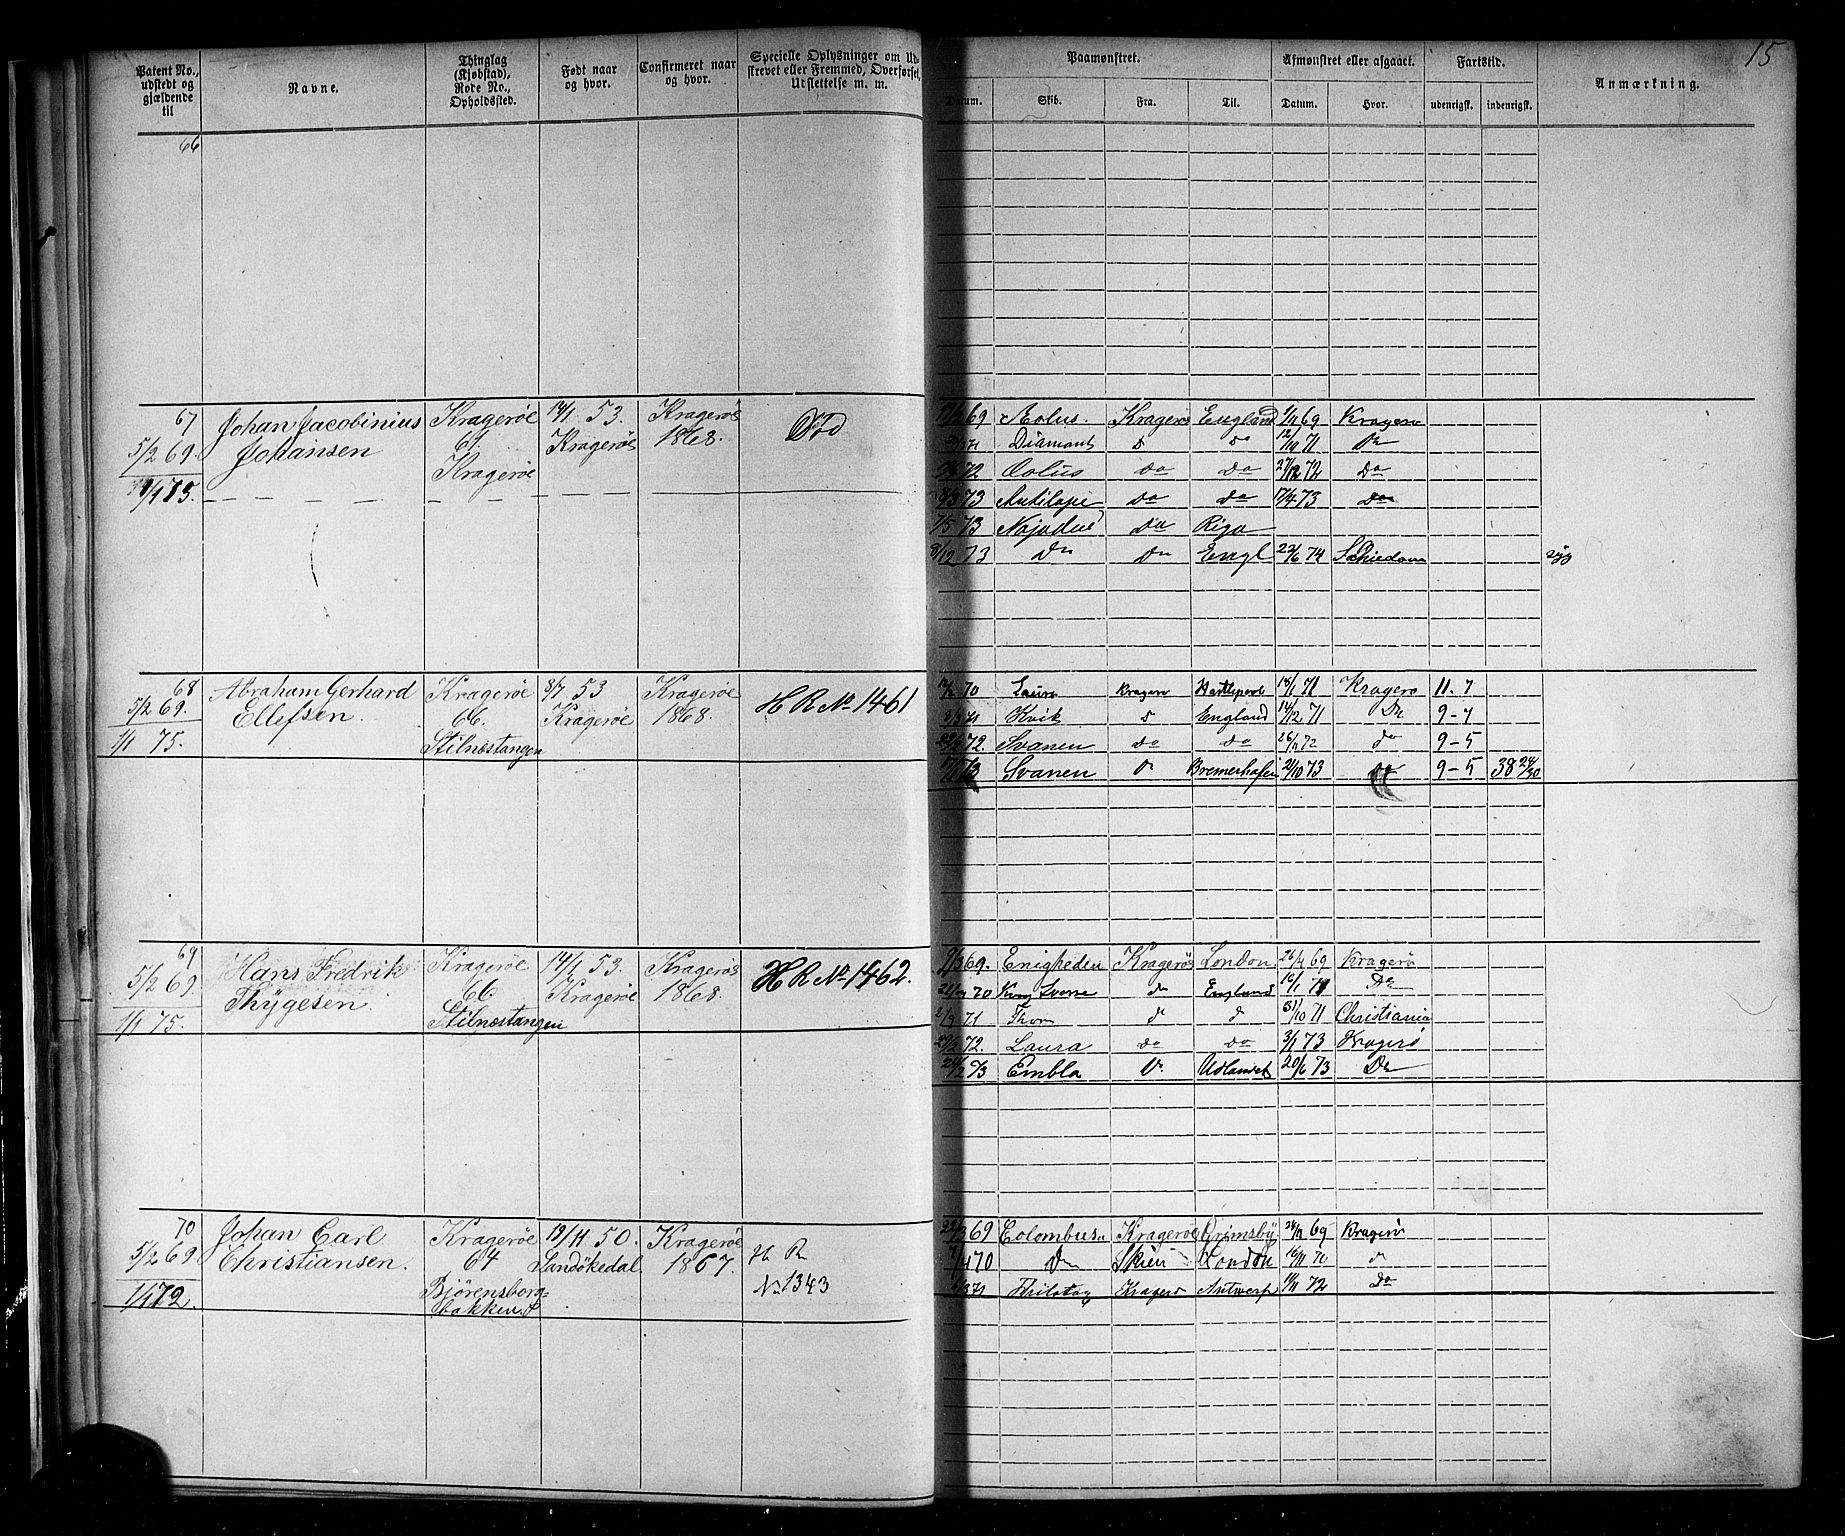 15
Patent No., udstedt og gjældende til
Navne.
Thinglag (Kjøbstad), Rode No., Opholdssted.
Født naar og hvor.
Confirmeret naar og hvor.
Specielle Oplysninger om Udskrevet eller Fremmed, Overførsel, Udslettelse m. m.
Paamønstret.
Datum. Skib. Fra. Til.
Afmønstret eller afgaaet.
Datum. Hvor.
Fartstid.
udenrigsk. indenrigsk.
Anmærkning.
66
67
5/2 69.
1/1 75.
Johan Jacobinius
Johansen
Kragerøe
61
Kragerøe
14/1 53.
Kragerøe
Kragerøe
1868.
Død
69 Aolus. Kragerø England 69 Kragerø
Diamant D do 71 Do
72 Eolus Do Do 27/12 72 Do
73 Antilope Do Do 17/4 73 Do
7/5 73 Najaden Do Riga
8/12 73 Do Do Engl 23/6 74 Schiedam syg
68
5/2 69.
1/1 75.
Abraham Gerhard
Ellefsen.
Kragerøe
66.
Stilnestangen
8/7 53
Kragerøe
Kragerøe
1868.
HR No 1461
70 Laura Kragerø Hartlepool 71 Kragerø 11-7
71 Kvik D England 14/12 71 Do 9-4
72. Svanen Do Do 72 do 9-5
73 Svanen D Bremerhafen 21/10 73 do 9-5 38 24/30
69
5/2 69.
1/1 75.
Hans Fredrik
Thygesen.
Kragerøe
66
Stilnestangen
14/1 53.
Kragerøe
Kragerøe
1868.
HR No 1462.
9/3 69. Enigheden Kragerøe London 26/4 69 Kragerø
70 Kong Sverre do England 71 Do
71 Thor d d 31/10 71 Christiania
72. Laura do do 3/1 73 Kragerø
73 Embla D Udlandet 20/6 73 Do
70
5/2 69
1/1 72.
Johan Carl
Christiansen.
Kragerøe
64
Bjørensborg-
bakken.
19/11 50.
Sandøkedal
Kragerøe
1867.
H R
No 1343
22/3 69 Colombus Kragerøe Grimsby 69 Kragerø
70 Do Skien London 70 d
71 Kragerø Antwerp 72 do